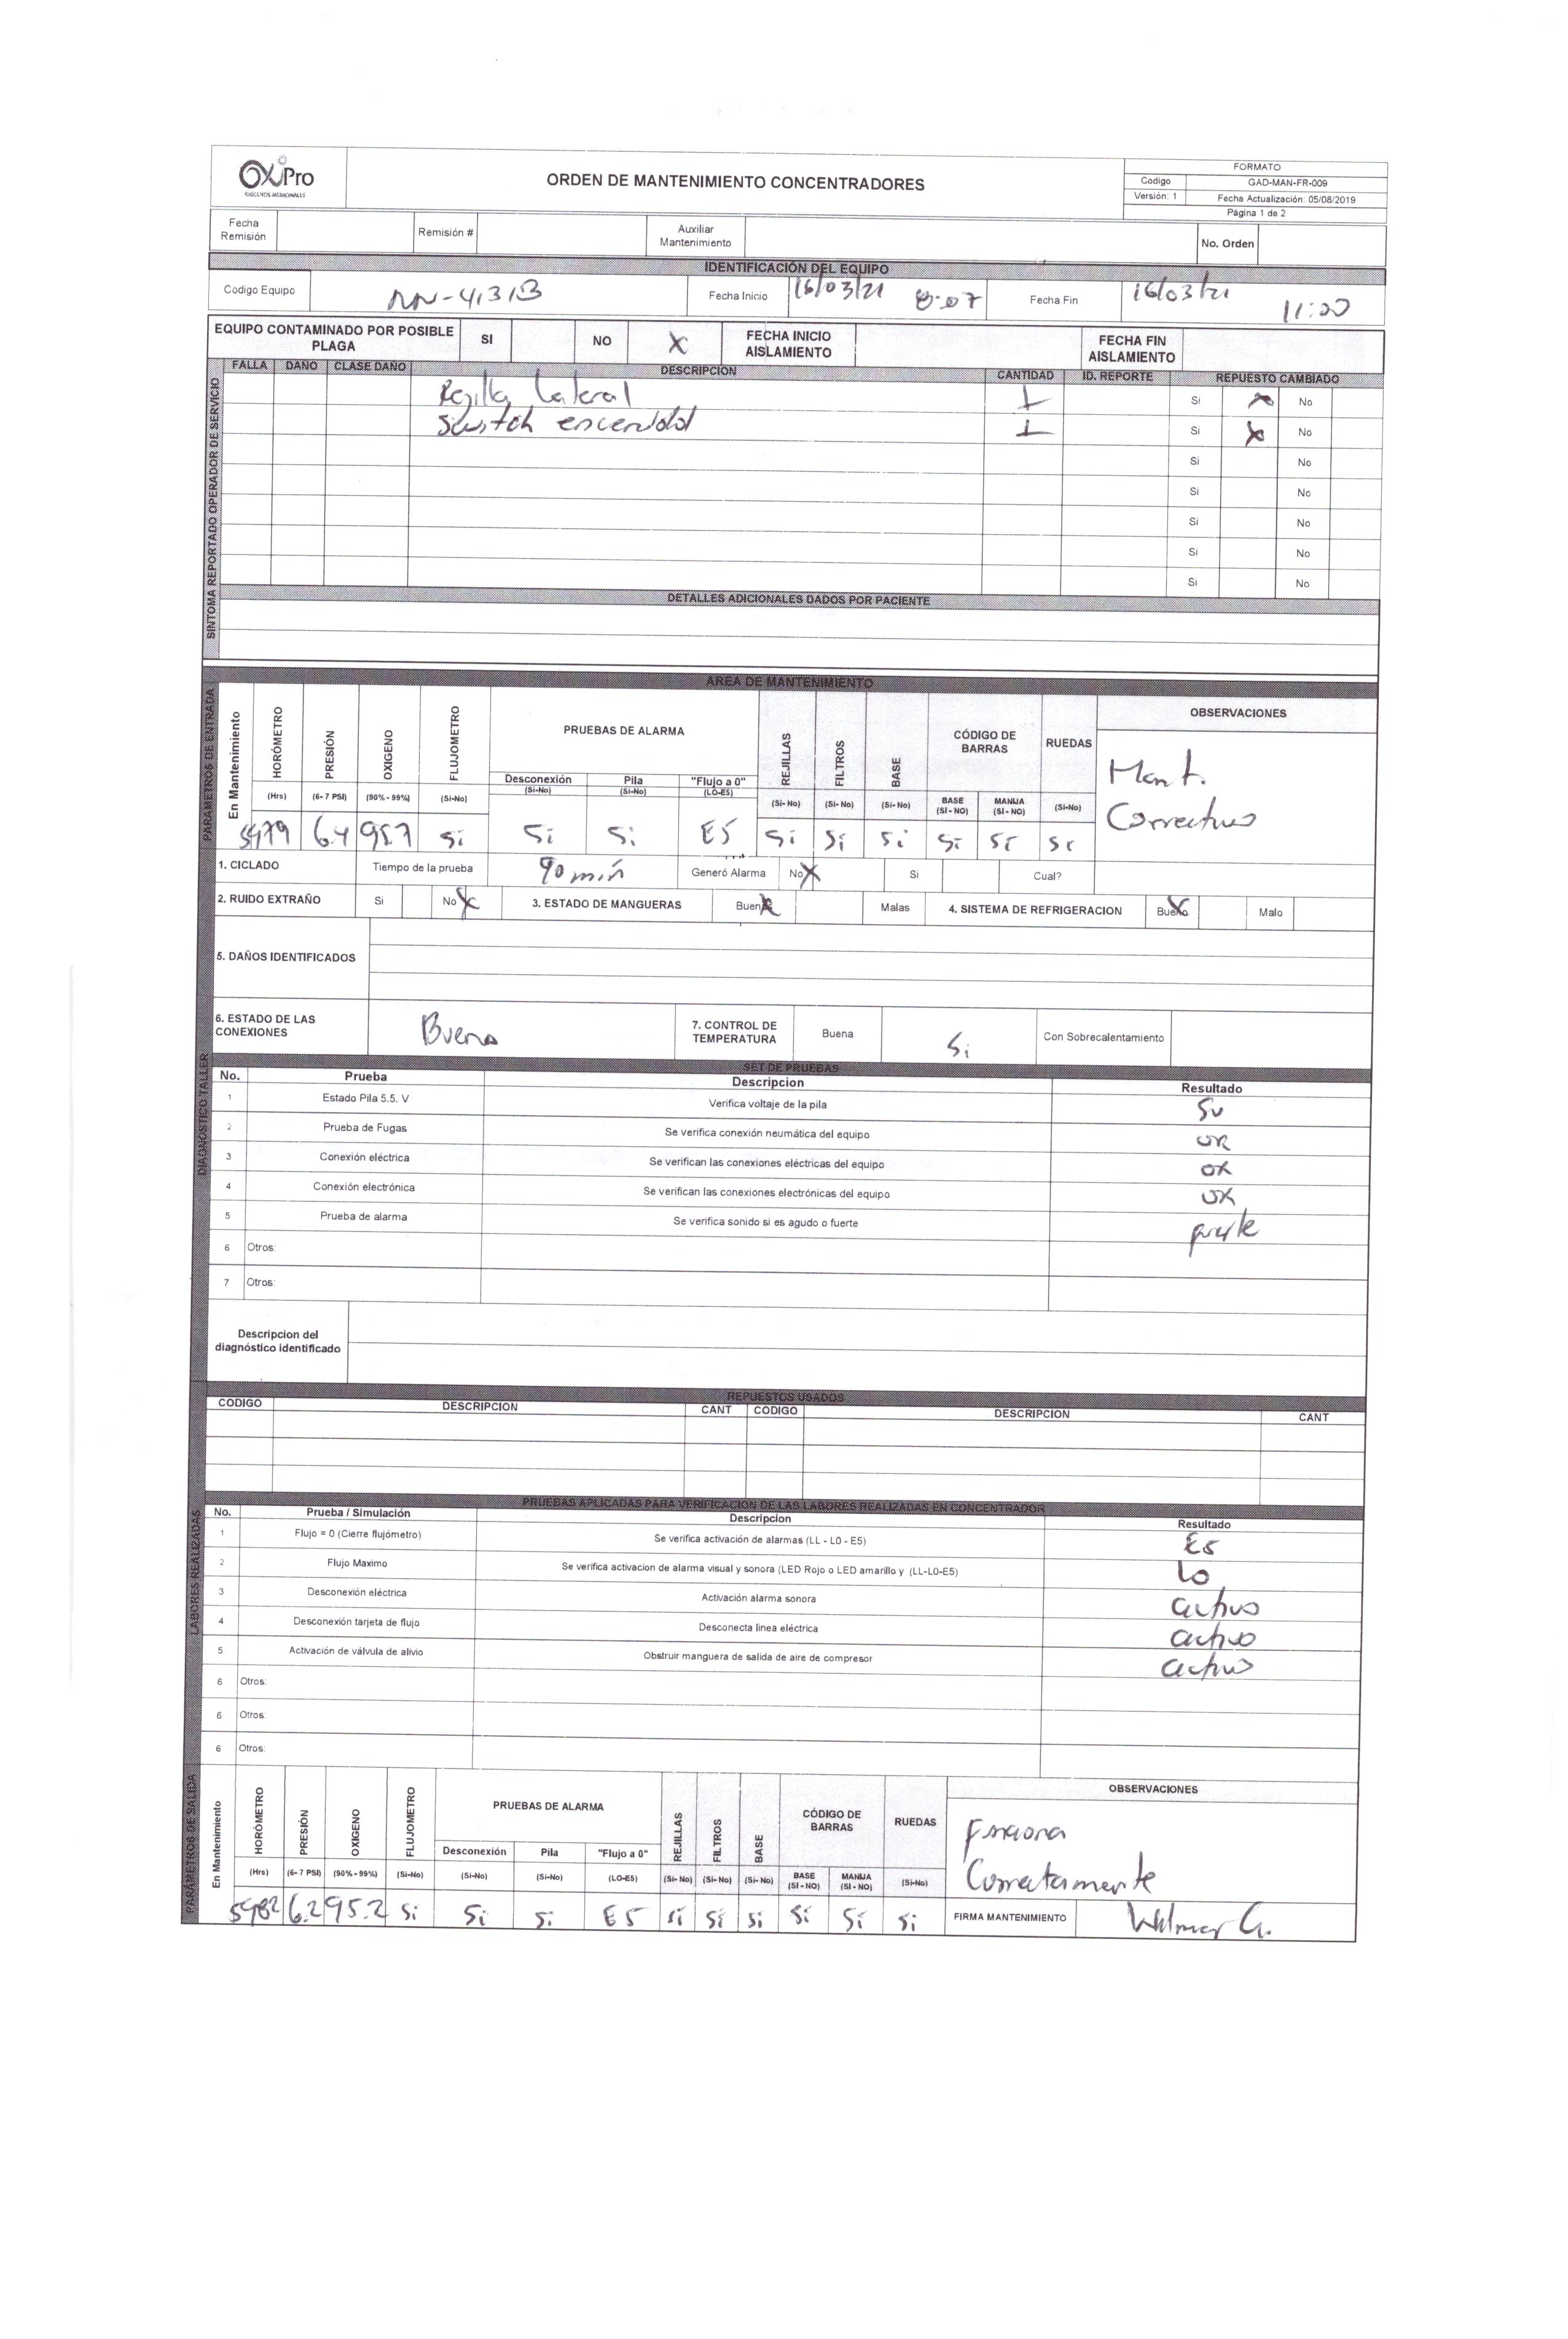 OxiPro
OXÍGENOS MEDICINALES
ORDEN DE MANTENIMIENTO CONCENTRADORES
FORMATO
Codigo GAD-MAN-FR-009
Versión: 1 Fecha Actualización: 05/08/2019
Página 1 de 2
Fecha Remisión Remisión # Auxiliar Mantenimiento No. Orden
IDENTIFICACIÓN DEL EQUIPO
Codigo Equipo NN-4313 Fecha Inicio 16/03/21 8:07 Fecha Fin 16/03/21 11:20
EQUIPO CONTAMINADO POR POSIBLE PLAGA SI NO X FECHA INICIO AISLAMIENTO FECHA FIN AISLAMIENTO
SINTOMA REPORTADO OPERADOR DE SERVICIO
FALLA DAÑO CLASE DAÑO DESCRIPCION CANTIDAD ID. REPORTE REPUESTO CAMBIADO
Rejilla lateral 1 Si X No
Switch encendido 1 Si X No
Si No
Si No
Si No
Si No
Si No
DETALLES ADICIONALES DADOS POR PACIENTE
AREA DE MANTENIMIENTO
PARAMETROS DE ENTRADA
En Mantenimiento HORÓMETRO PRESIÓN OXIGENO FLUJOMETRO PRUEBAS DE ALARMA REJILLAS FILTROS BASE CÓDIGO DE BARRAS RUEDAS OBSERVACIONES
Desconexión Pila "Flujo a 0"
(Hrs) (6- 7 PSI) (90% - 99%) (Si-No) (Si-No) (Si-No) (LO-E5) (Si- No) (Si- No) (Si- No) BASE (SI - NO) MANIJA (SI - NO) (Si-No)
5979 6.4 95.7 Si Si Si E5 Si Si Si Si Si Si
Mant.
Correctivo
1. CICLADO Tiempo de la prueba 90 min Generó Alarma No X Si Cual?
2. RUIDO EXTRAÑO Si No X 3. ESTADO DE MANGUERAS Buena X Malas 4. SISTEMA DE REFRIGERACION Bueno X Malo
5. DAÑOS IDENTIFICADOS
6. ESTADO DE LAS CONEXIONES Buena 7. CONTROL DE TEMPERATURA Buena Si Con Sobrecalentamiento
DIAGNOSTICO TALLER
SET DE PRUEBAS
No. Prueba Descripcion Resultado
1 Estado Pila 5.5. V Verifica voltaje de la pila 5v
2 Prueba de Fugas Se verifica conexión neumática del equipo OK
3 Conexión eléctrica Se verifican las conexiones eléctricas del equipo OK
4 Conexión electrónica Se verifican las conexiones electrónicas del equipo OK
5 Prueba de alarma Se verifica sonido si es agudo o fuerte fuerte
6 Otros:
7 Otros:
Descripcion del diagnóstico identificado
REPUESTOS USADOS
CODIGO DESCRIPCION CANT CODIGO DESCRIPCION CANT
LABORES REALIZADAS
PRUEBAS APLICADAS PARA VERIFICACION DE LAS LABORES REALIZADAS EN CONCENTRADOR
No. Prueba / Simulación Descripcion Resultado
1 Flujo = 0 (Cierre flujómetro) Se verifica activación de alarmas (LL - L0 - E5) E5
2 Flujo Maximo Se verifica activacion de alarma visual y sonora (LED Rojo o LED amarillo y (LL-L0-E5) Lo
3 Desconexión eléctrica Activación alarma sonora activo
4 Desconexión tarjeta de flujo Desconecta linea eléctrica activo
5 Activación de válvula de alivio Obstruir manguera de salida de aire de compresor activo
6 Otros:
6 Otros:
6 Otros:
PARÁMETROS DE SALIDA
En Mantenimiento HORÓMETRO PRESIÓN OXIGENO FLUJOMETRO PRUEBAS DE ALARMA REJILLAS FILTROS BASE CÓDIGO DE BARRAS RUEDAS OBSERVACIONES
Desconexión Pila "Flujo a 0"
(Hrs) (6- 7 PSI) (90% - 99%) (Si-No) (Si-No) (Si-No) (LO-E5) (Si- No) (Si- No) (Si- No) BASE (SI - NO) MANIJA (SI - NO) (Si-No)
5982 6.2 95.2 Si Si Si E5 Si Si Si Si Si Si
Funciona
Correctamente
FIRMA MANTENIMIENTO Wilmer G.